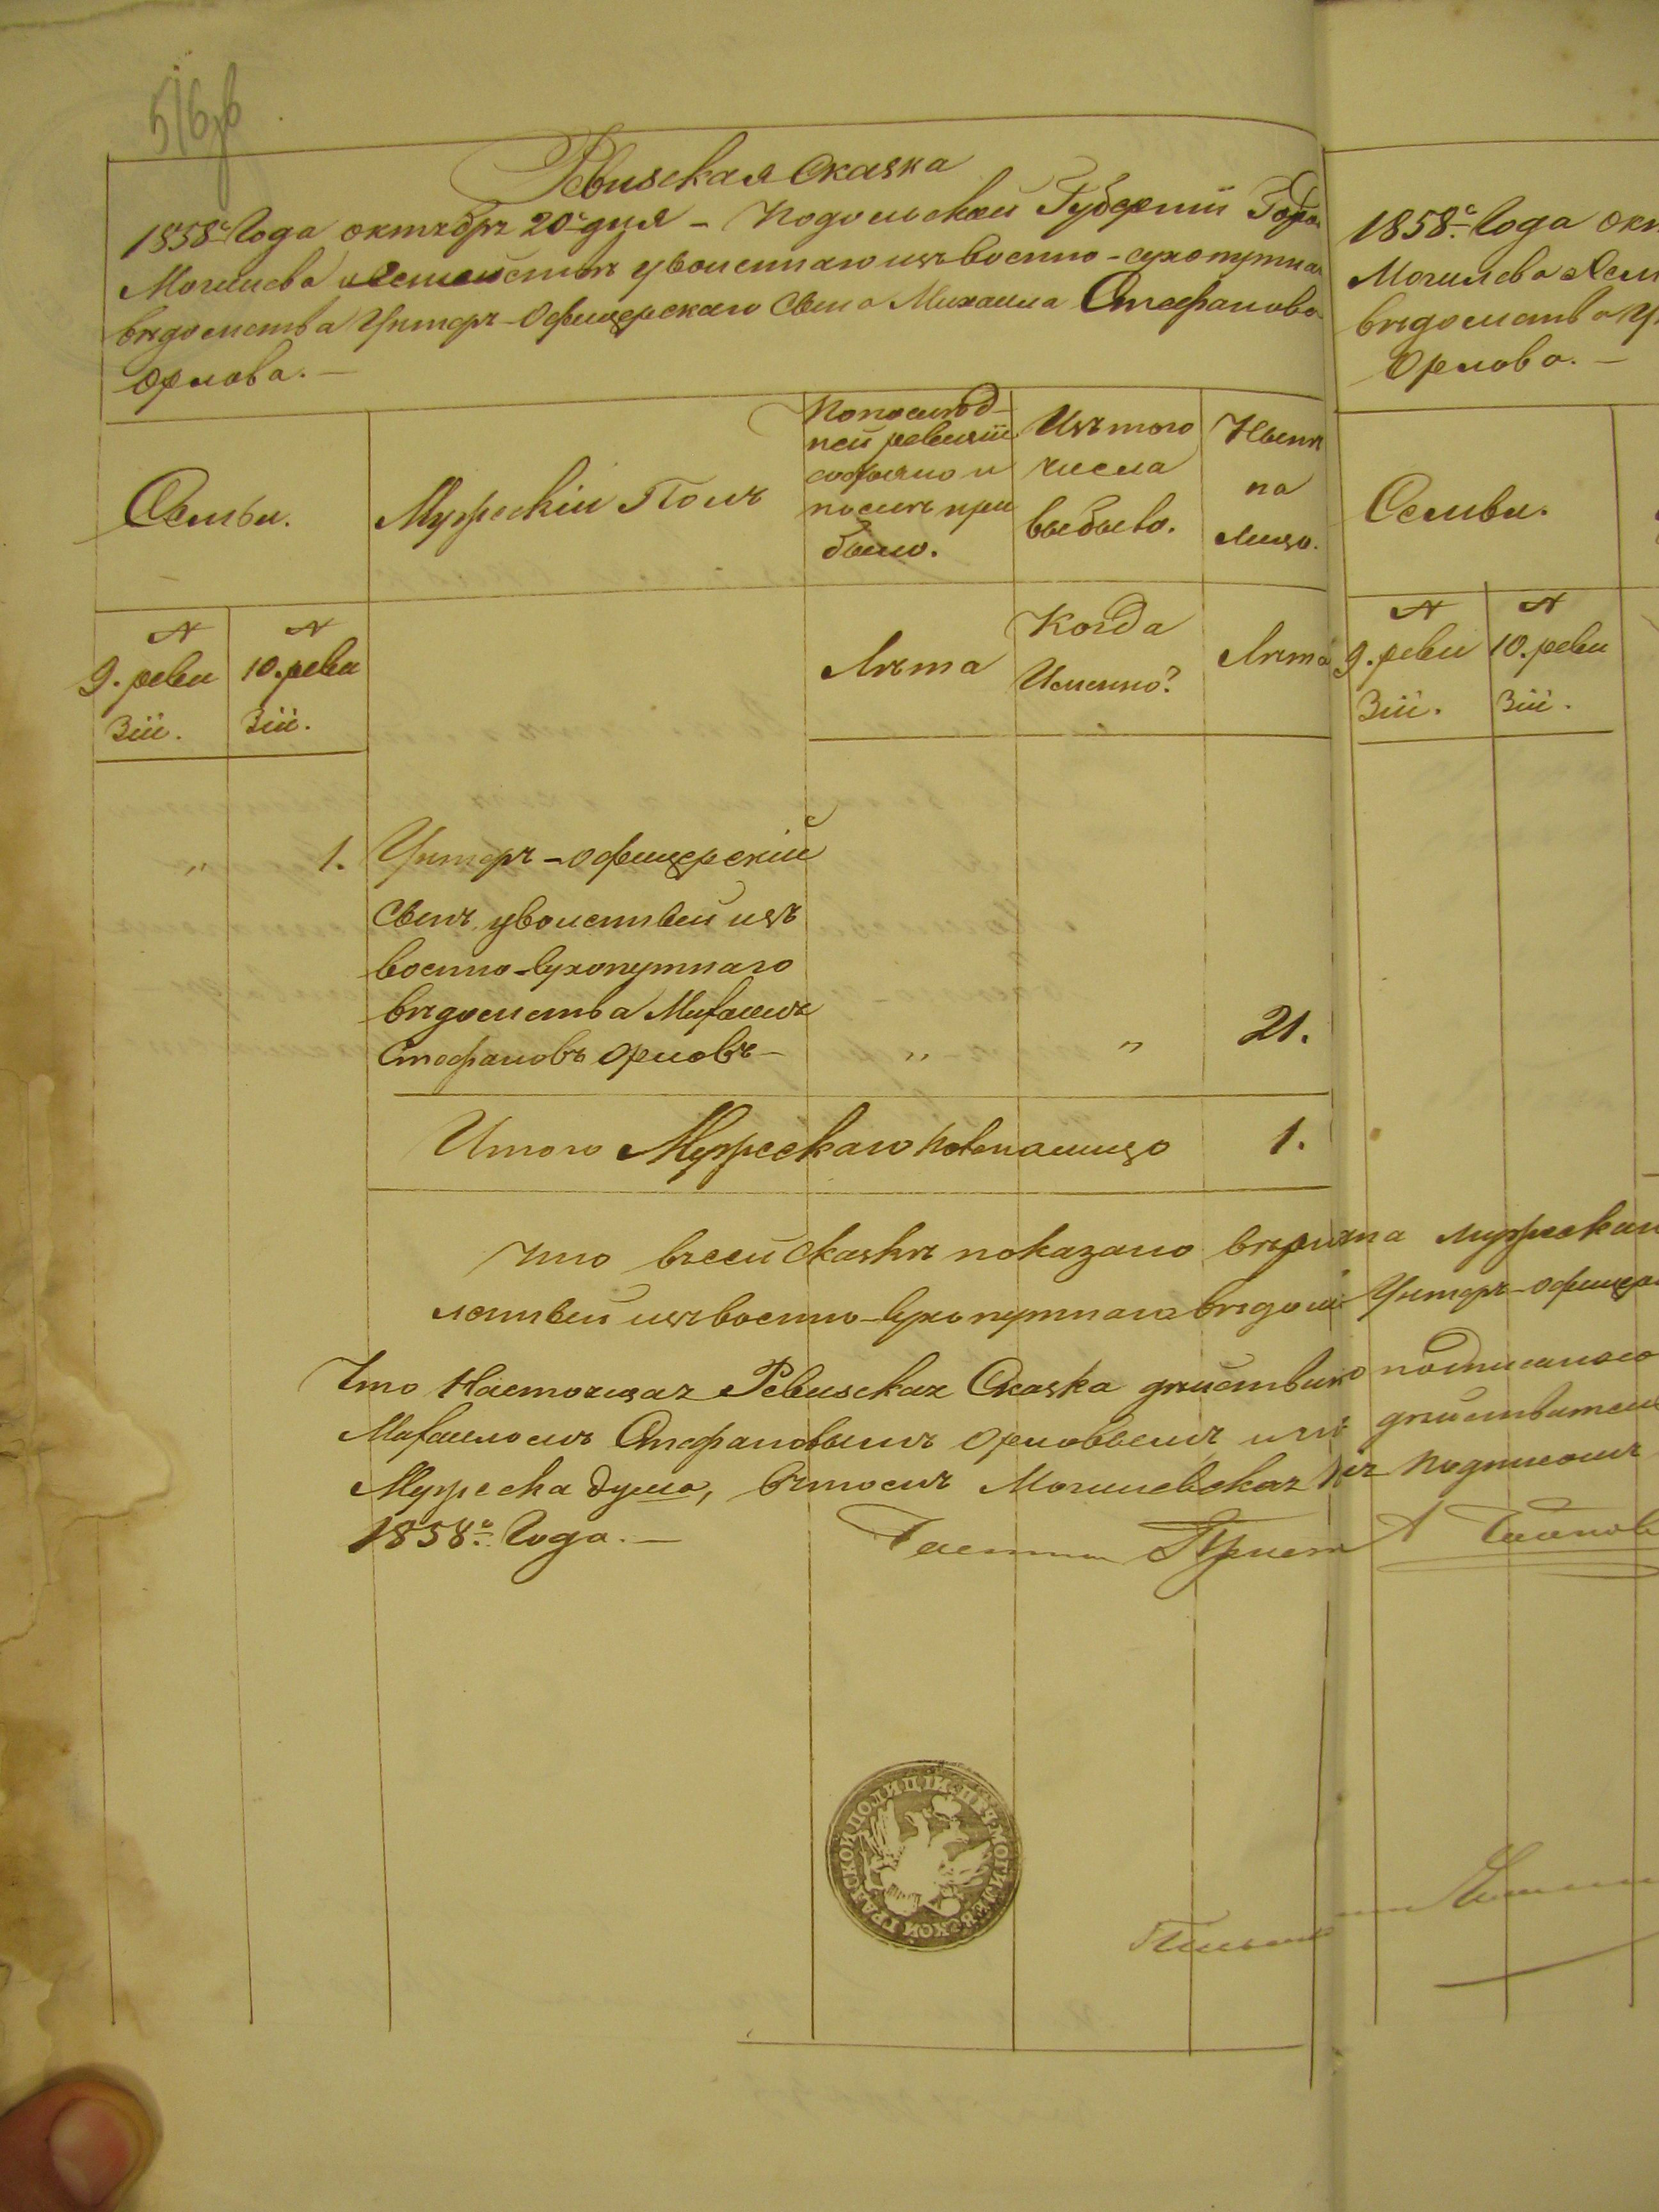 Ревизская Сказка
1858 года октября 20 дня - Подольской Губерніи Горо
Могилева о Семействѣ уволеннаго изъ военно-сухопутна
вѣдомства Унтеръ-Офицерскаго Сына Михаила Стефанова
Орлова.-
Семьи.
Мужескій Полъ
По послѣд-
ней ревизіи
состояло и
послѣ при
было.
Изъ того
числа
выбыло.
Нынѣ
на
лицо.
№
9. реви
зіи.
№
10. реви
зіи.
Лѣта
Когда
Именно?
Лѣта
" 1. Унтеръ-офицерскій
Сынъ уволенный изъ
военно-сухопутнаго
вѣдомства Михаилъ
Стефановъ Орловъ- " " 21.
Итого Мужескаго пола на лицо 1.
Что въ сей Сказкѣ показано
ленный изъ военно-сухопутнаго вѣдом Унтеръ-офицер
Что Настоящая Ревизская Сказка подписана
Михаиломъ Стефановымъ Орловымъ
Мужеска душа, въ томъ Могилевская подписомъ
1858 года.-
ПЕЧ. МОГИЛЕВСКОЙ ГРАДСКОЙ ПОЛИЦІИ
1858 года окт
Могилева о Сем
вѣдомства У
Орлова.-
Семьи.
№
9. реви
зіи.
№
10. реви
зіи.
Мужескаг